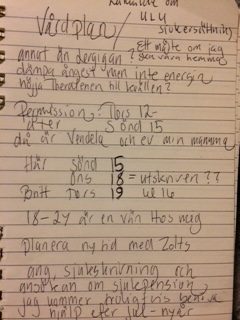 om
Vårdplan / ULV
sjukersättning
Ett måste om jag
annat än Lergigan? ska vara hemma
dämpa ångest men inte energin
höja Theralenen till kvällen?
Permission: Tors 12-
åter Sönd 15
då är Vendela och ev min mamma
Här Sönd 15
Ons 18 = utskriven??
Britt Tors 19 kl 16
18-24 är en vän Hos mig
planera ny tid med Zolts
ang. sjukskrivning och
ansökan om sjukpension
jag kommer troligtvis behöva
hjälp efter jul-nyår